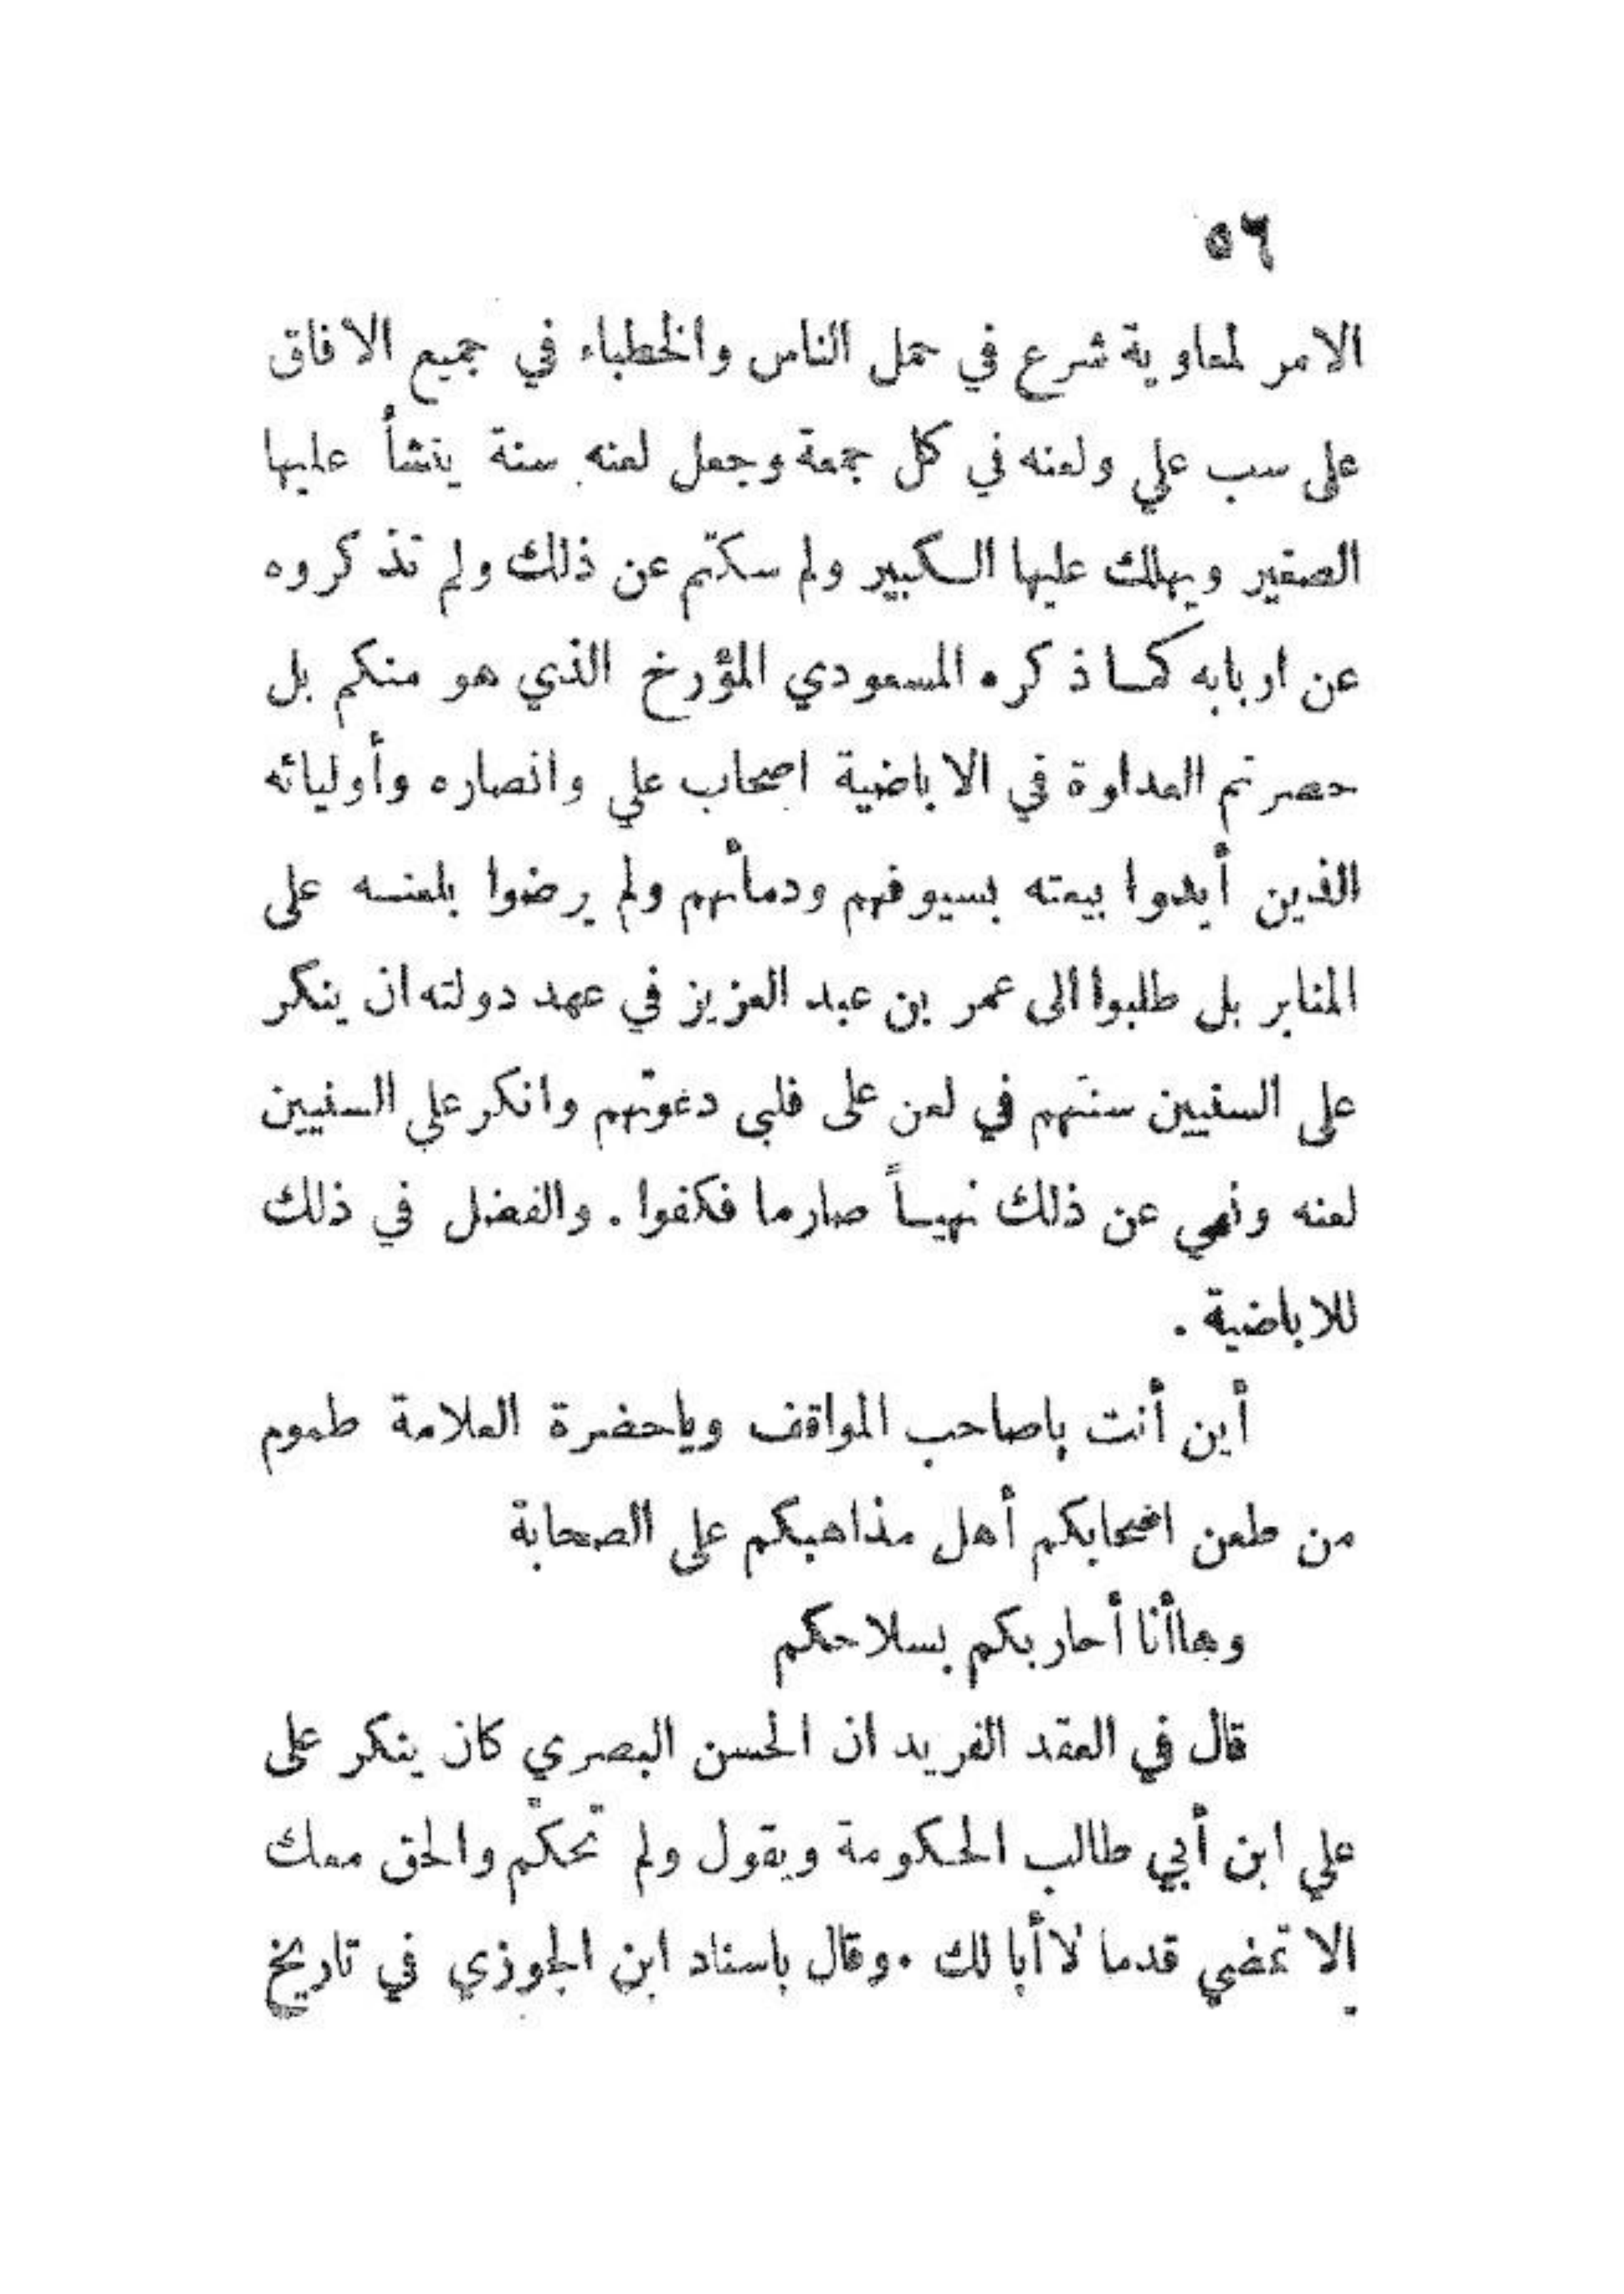 ٥٦
الامر لمعاوية شرع في حمل الناس والخطباء في جميع الافاق
على سب علي ولعنه في كل جمعة وجعل لعنه سنة ينشأ عليها
الصغير ويهلك عليها الكبير ولم سكتم عن ذلك ولم تذكروه
عن اربابه كما ذكره المسعودي المؤرخ الذي هو منكم بل
حصرتم العداوة في الاباضية اصحاب علي وانصاره وأوليائه
الذين أيدوا بيعته بسيوفهم ودمائهم ولم يرضوا بلعنه على
المنابر بل طلبوا الى عمر بن عبد العزيز في عهد دولته ان ينكر
على السنيين سنتهم في لعن على فلبى دعوتهم وانكر علي السنيين
لعنه ونهي عن ذلك نهياً صارما فكفوا . والفضل في ذلك
للاباضية .
أين أنت ياصاحب المواقف وياحضرة العلامة طموم
من طعن اصحابكم أهل مذاهبكم على الصحابة
وهاأنا أحاربكم بسلاحكم
قال في العقد الفريد ان الحسن البصري كان ينكر على
علي ابن أبي طالب الحكومة ويقول ولم تحكّم والحق معك
إلا تمضي قدما لا أبا لك . وقال باسناد ابن الجوزي في تاريخ